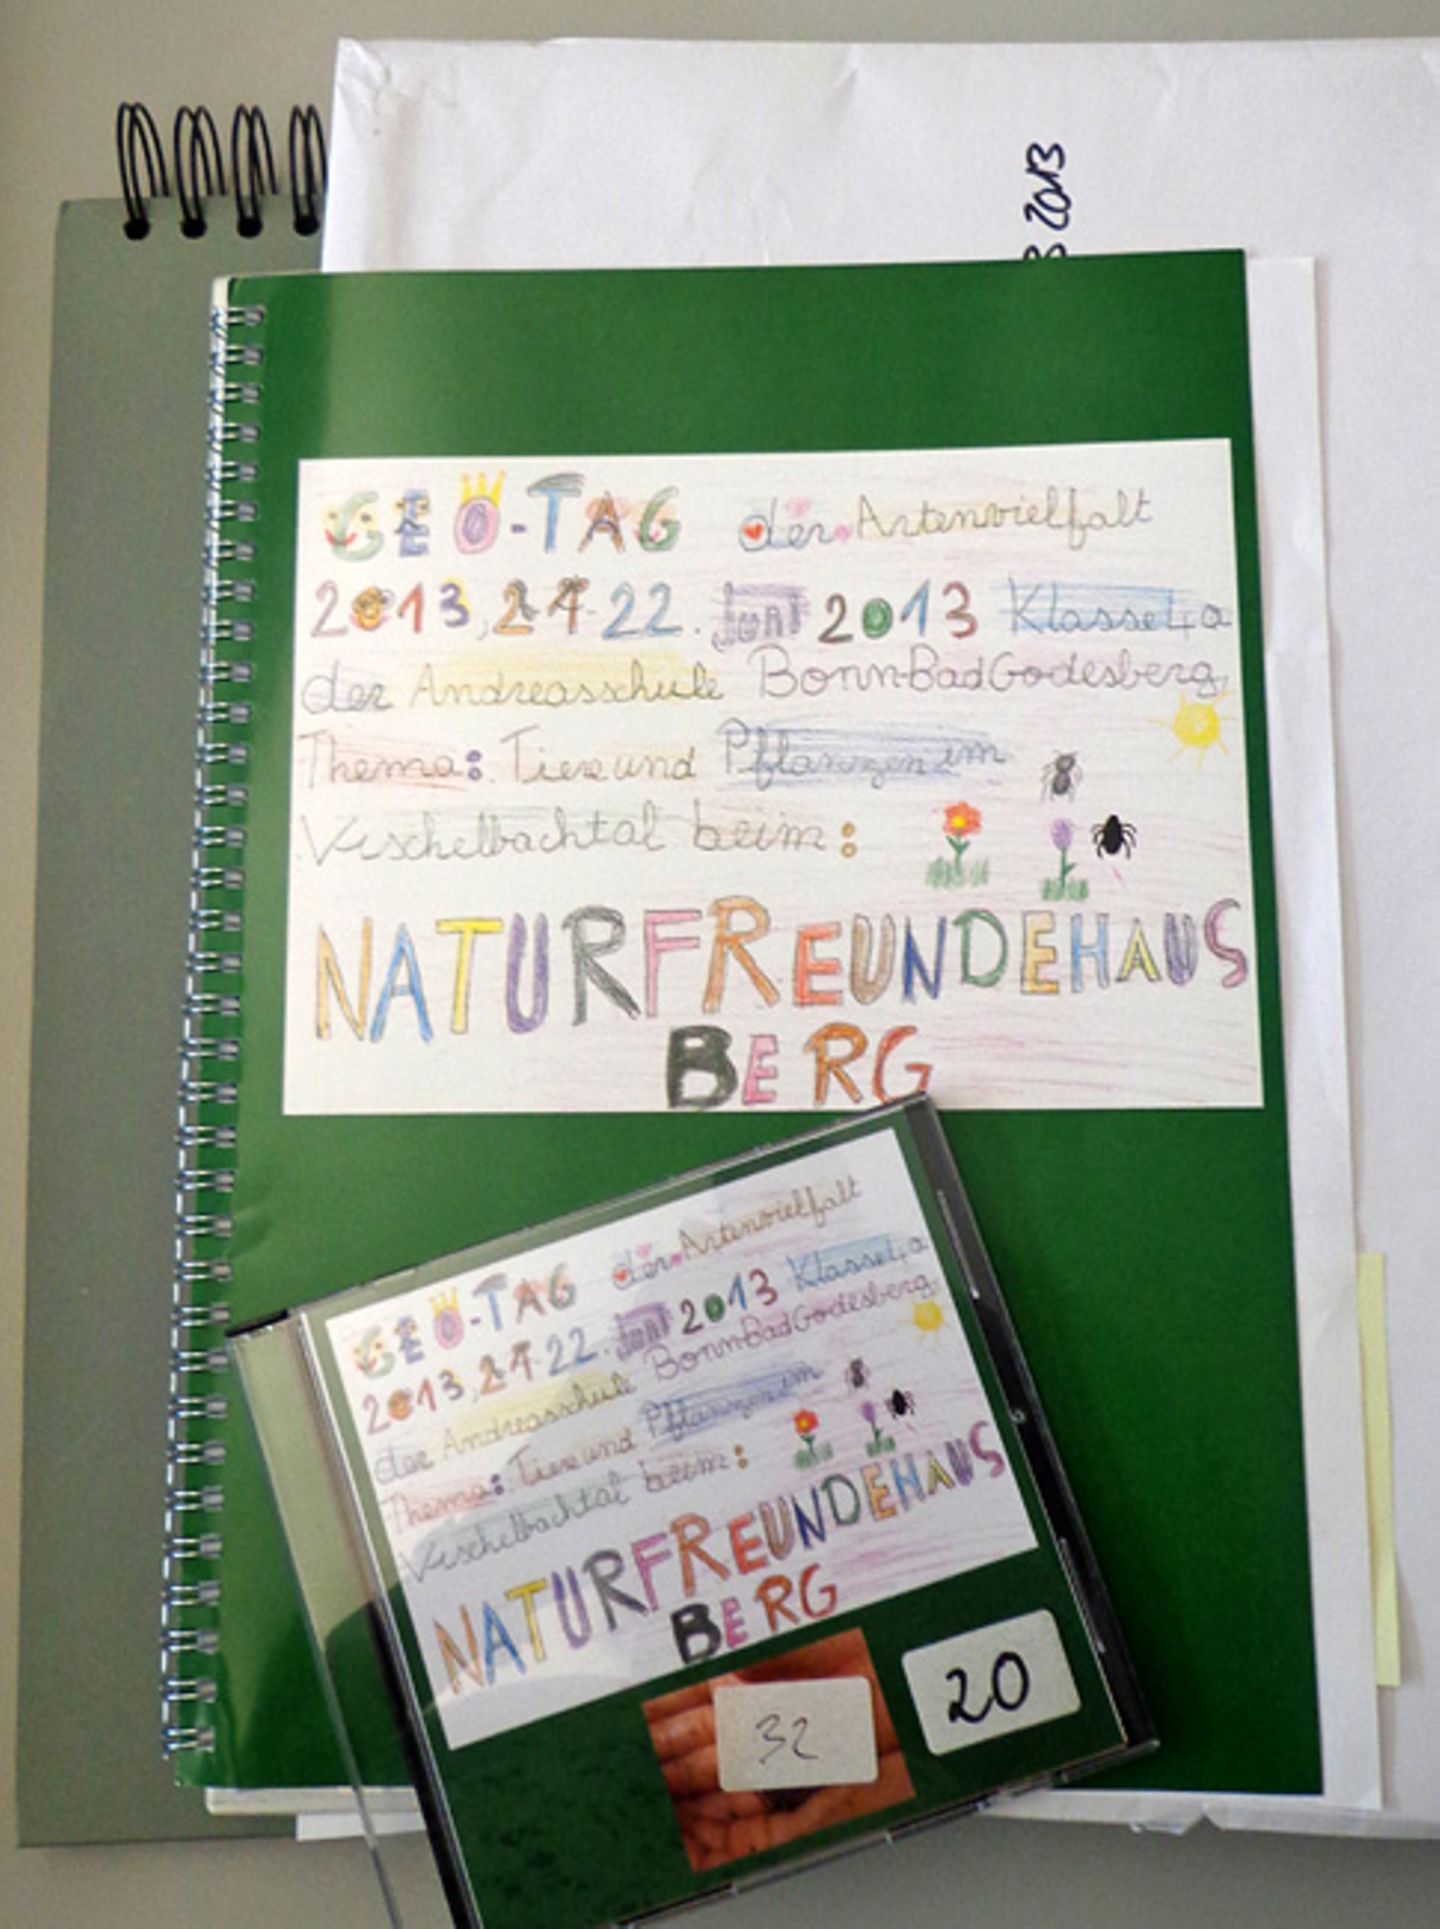 2013
GEO-TAG der Artenvielfalt
2013, 21-22. Juni 2013 Klasse4a
der Andreasschule Bonn-BadGodesberg,
Thema: Tiere und Pflanzen im
Vischelbachtal beim:
NATURFREUNDEHAUS
BERG
GEO-TAG der Artenvielfalt
2013, 21-22. Juni 2013 Klasse4a
der Andreasschule Bonn-BadGodesberg,
Thema: Tiere und Pflanzen im
Vischelbachtal beim:
NATURFREUNDEHAUS
BERG
32
20